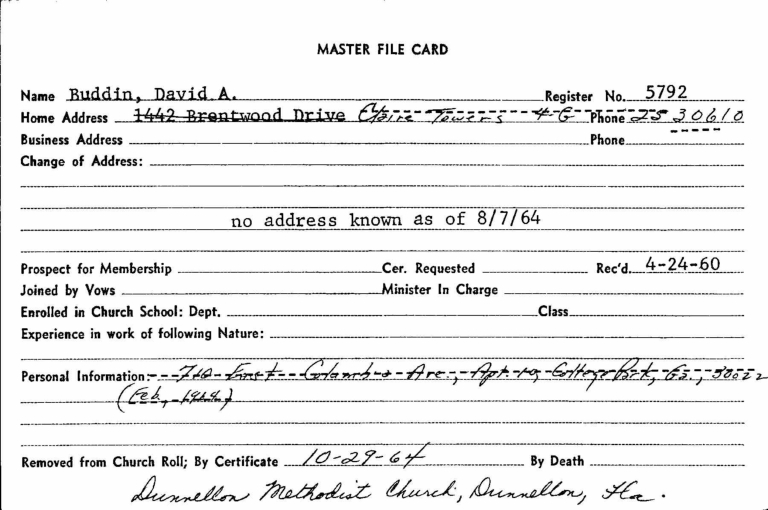 MASTER FILE CARD
Name Buddin, David A. Register No. 5792
Home Address 1442 Brentwood Drive Claire Towers 4-G Phone 2530610
Business Address Phone -----
Change of Address:
no address known as of 8/7/64
Prospect for Membership Cer. Requested Rec'd. 4-24-60
Joined by Vows Minister In Charge
Enrolled in Church School: Dept. Class
Experience in work of following Nature:
Personal Information: East Columbia Ave., Apt. College Park, Ga., 30022
(Feb,
Removed from Church Roll; By Certificate 10-29-64 By Death
Dunnellon Methodist Church, Dunnellon, Fla.